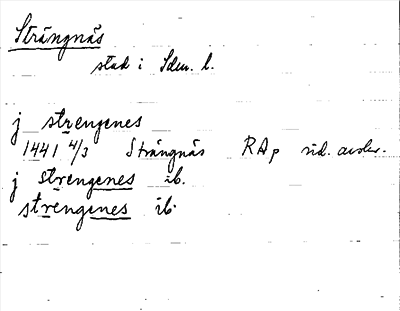 Strängnäs
stad i Sdm. l.
j strengenes
1441 4/3 Strängnäs RAp sid. avskr.
j strengenes ib.
strengenes ib.